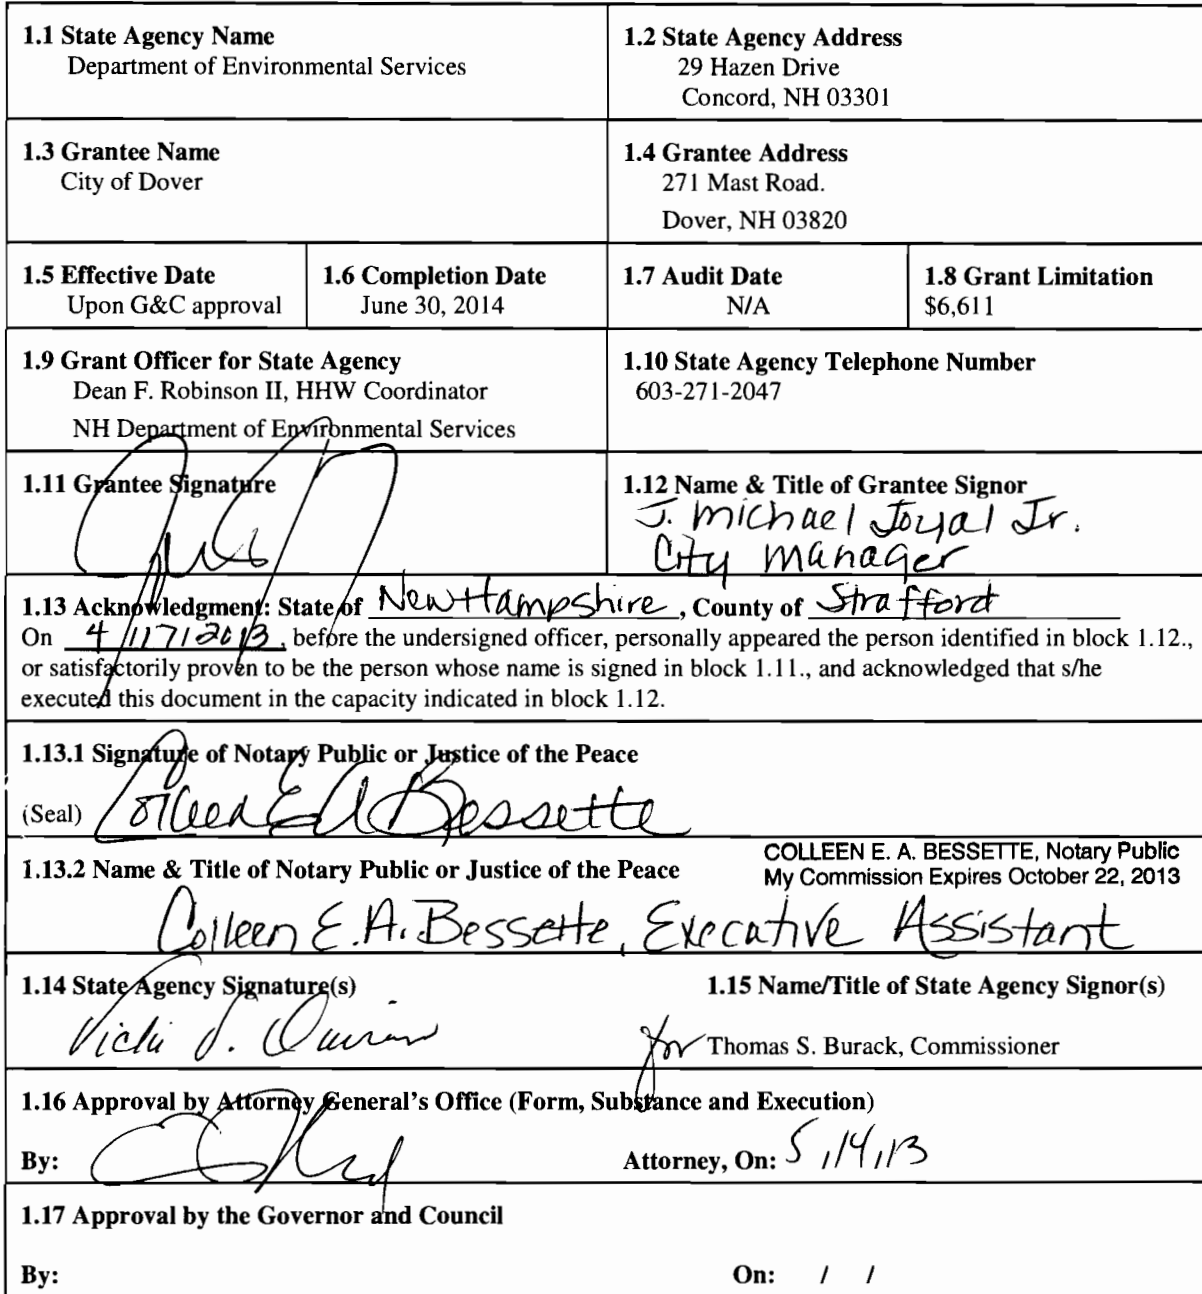 1.1 State Agency Name
Department of Environmental Services
1.2 State Agency Address
29 Hazen Drive
Concord, NH 03301
1.3 Grantee Name
City of Dover
1.4 Grantee Address
271 Mast Road.
Dover, NH 03820
1.5 Effective Date
Upon G&C approval
1.6 Completion Date
June 30, 2014
1.7 Audit Date
N/A
1.8 Grant Limitation
$6,611
1.9 Grant Officer for State Agency
Dean F. Robinson II, HHW Coordinator
NH Department of Environmental Services
1.10 State Agency Telephone Number
603-271-2047
1.11 Grantee Signature
1.12 Name & Title of Grantee Signor
J. Michael Joyal Jr.
City Manager
1.13 Acknowledgment: State of New Hampshire, County of Strafford
On 4/17/2013, before the undersigned officer, personally appeared the person identified in block 1.12.,
or satisfactorily proven to be the person whose name is signed in block 1.11., and acknowledged that s/he
executed this document in the capacity indicated in block 1.12.
1.13.1 Signature of Notary Public or Justice of the Peace
(Seal) Colleen E A Bessette
1.13.2 Name & Title of Notary Public or Justice of the Peace
COLLEEN E. A. BESSETTE, Notary Public
My Commission Expires October 22, 2013
Colleen E.A. Bessette, Executive Assistant
1.14 State Agency Signature(s)
Vicki J.
1.15 Name/Title of State Agency Signor(s)
for Thomas S. Burack, Commissioner
1.16 Approval by Attorney General's Office (Form, Substance and Execution)
By:
Attorney, On: 5/14/13
1.17 Approval by the Governor and Council
By:
On: / /